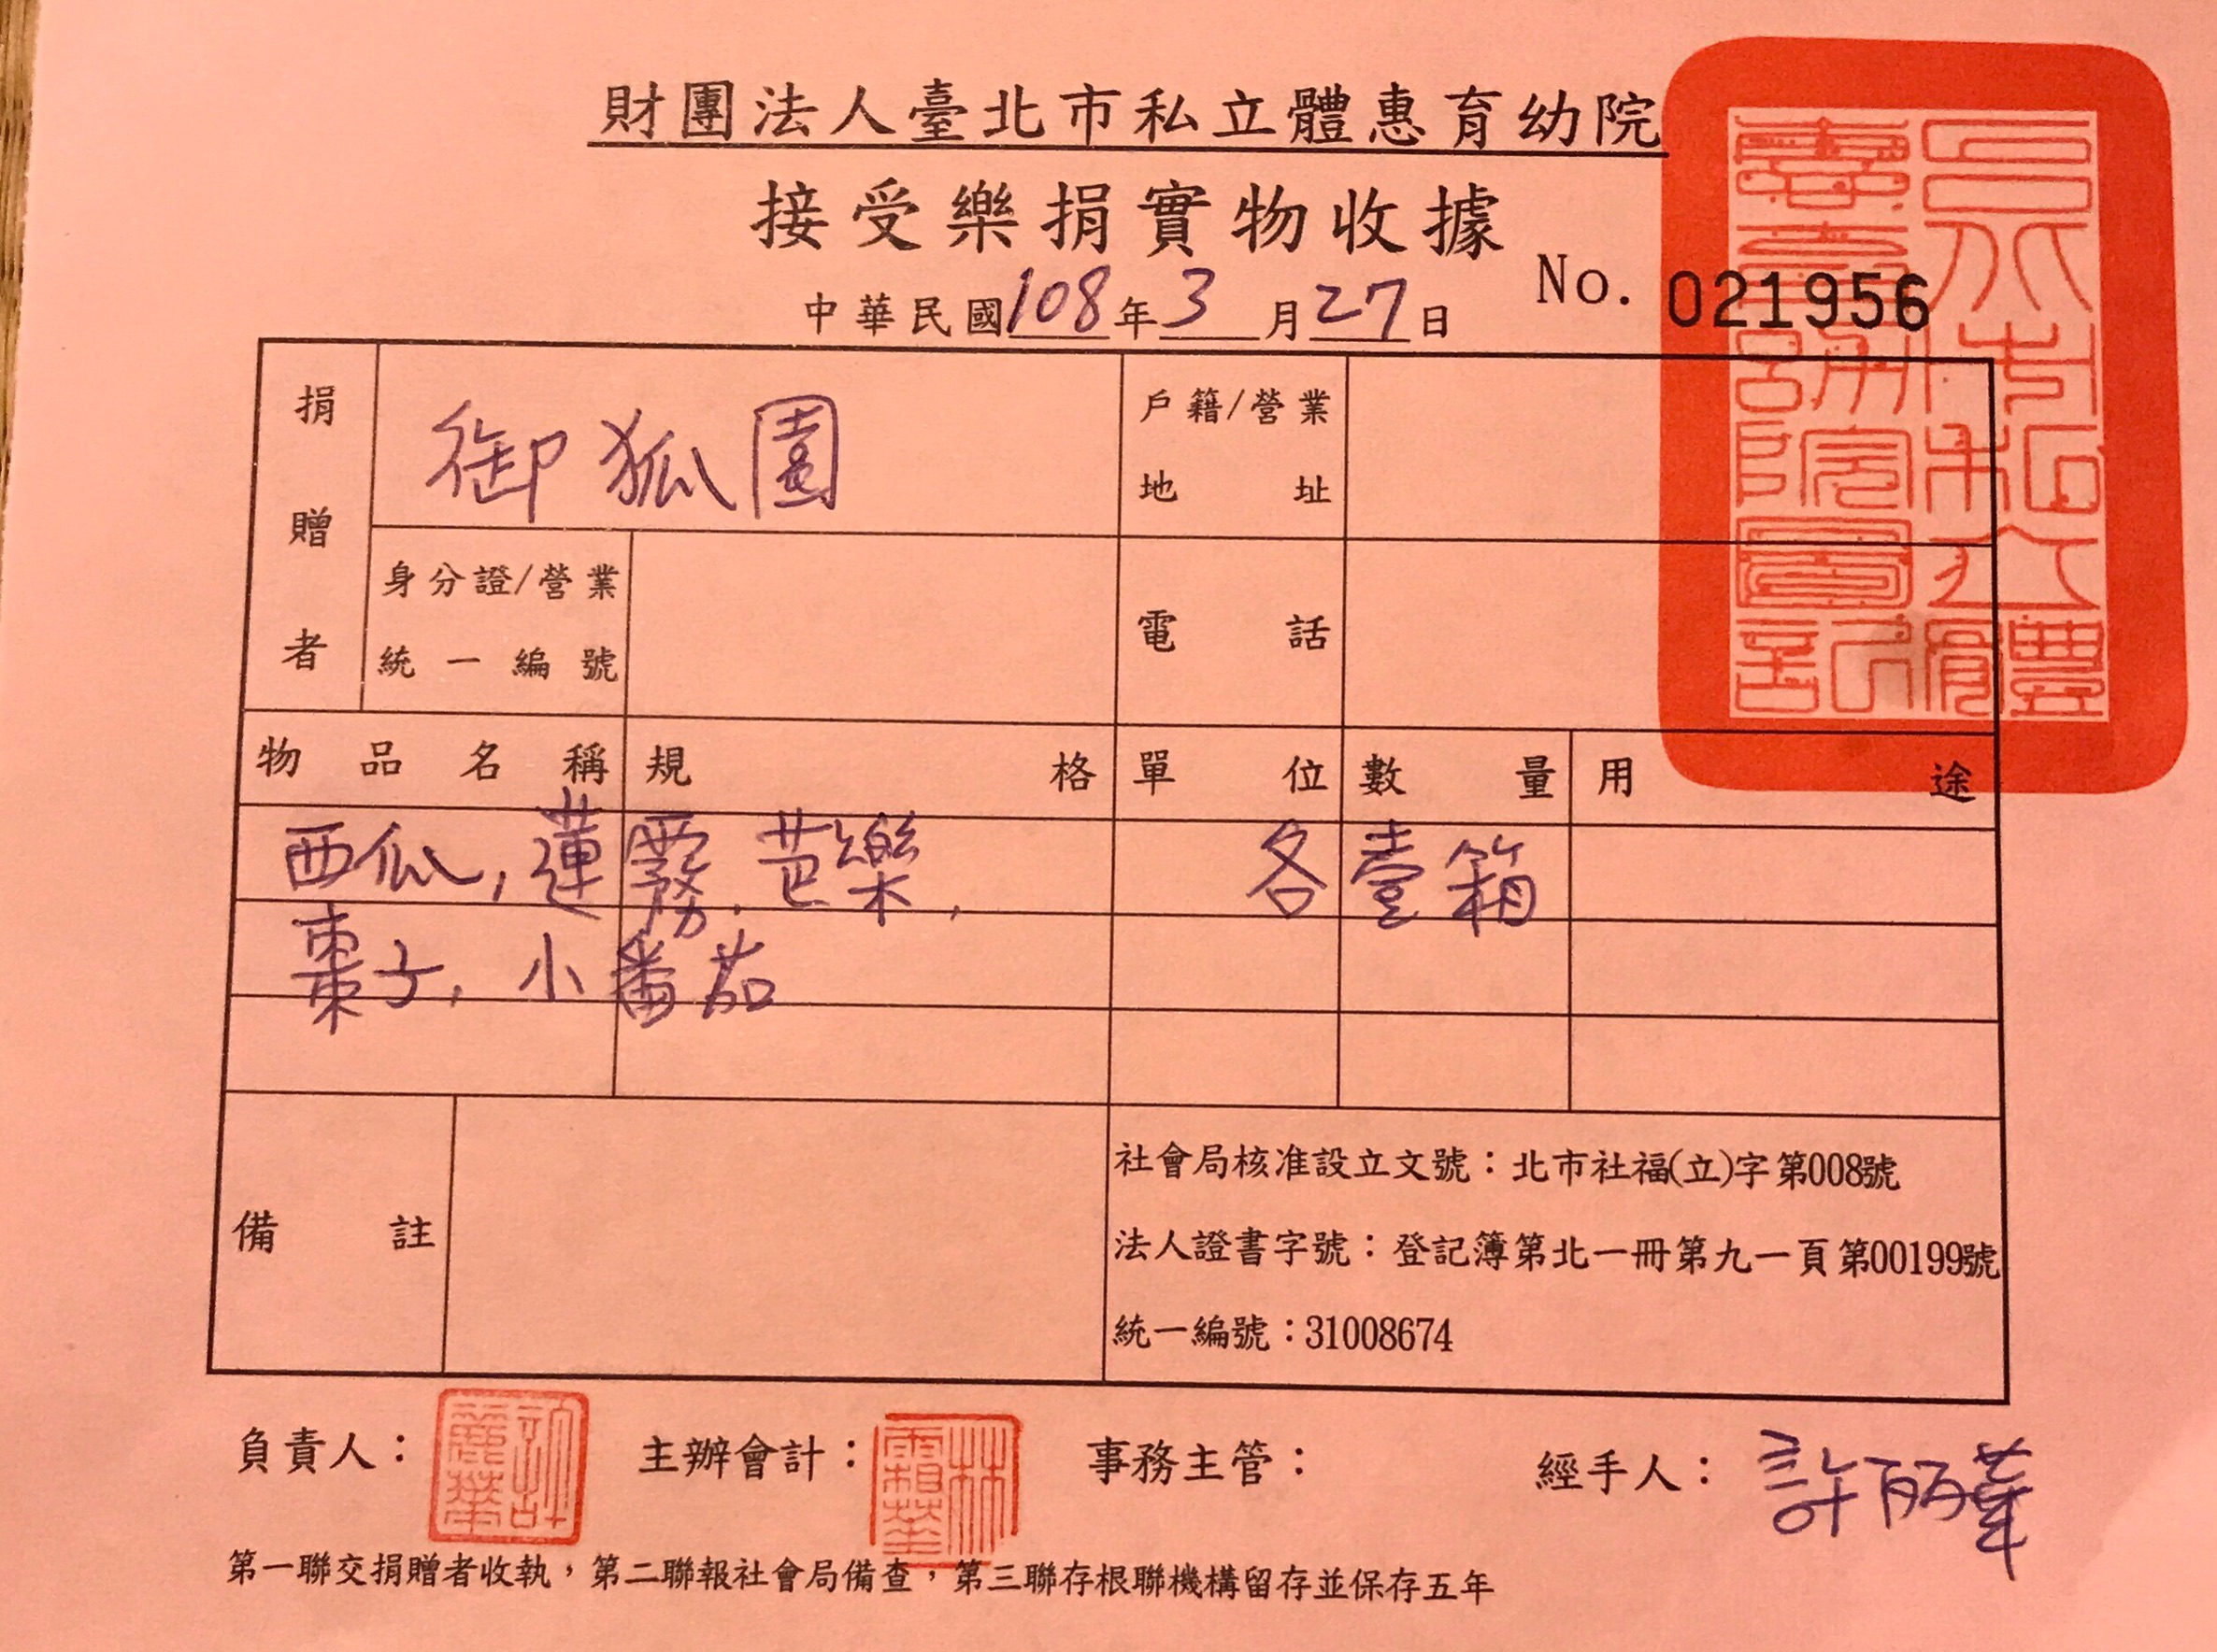 財團法人臺北市私立體惠育幼院
接受樂捐實物收據
中華民國108年3月27日
No. 021956
捐贈者
御狐園
戶籍/營業
地址
身分證/營業
統一編號
電話
物品名稱 規格 單位 數量 用途
西瓜,蓮霧.芭樂, 各壹箱
棗子,小番茄
備註
社會局核准設立文號:北市社福(立)字第008號
法人證書字號:登記簿第北一冊第九一頁第00199號
統一編號:31008674
負責人: 主辦會計: 事務主管: 經手人:許丽華
第一聯交捐贈者收執,第二聯報社會局備查,第三聯存根聯機構留存並保存五年